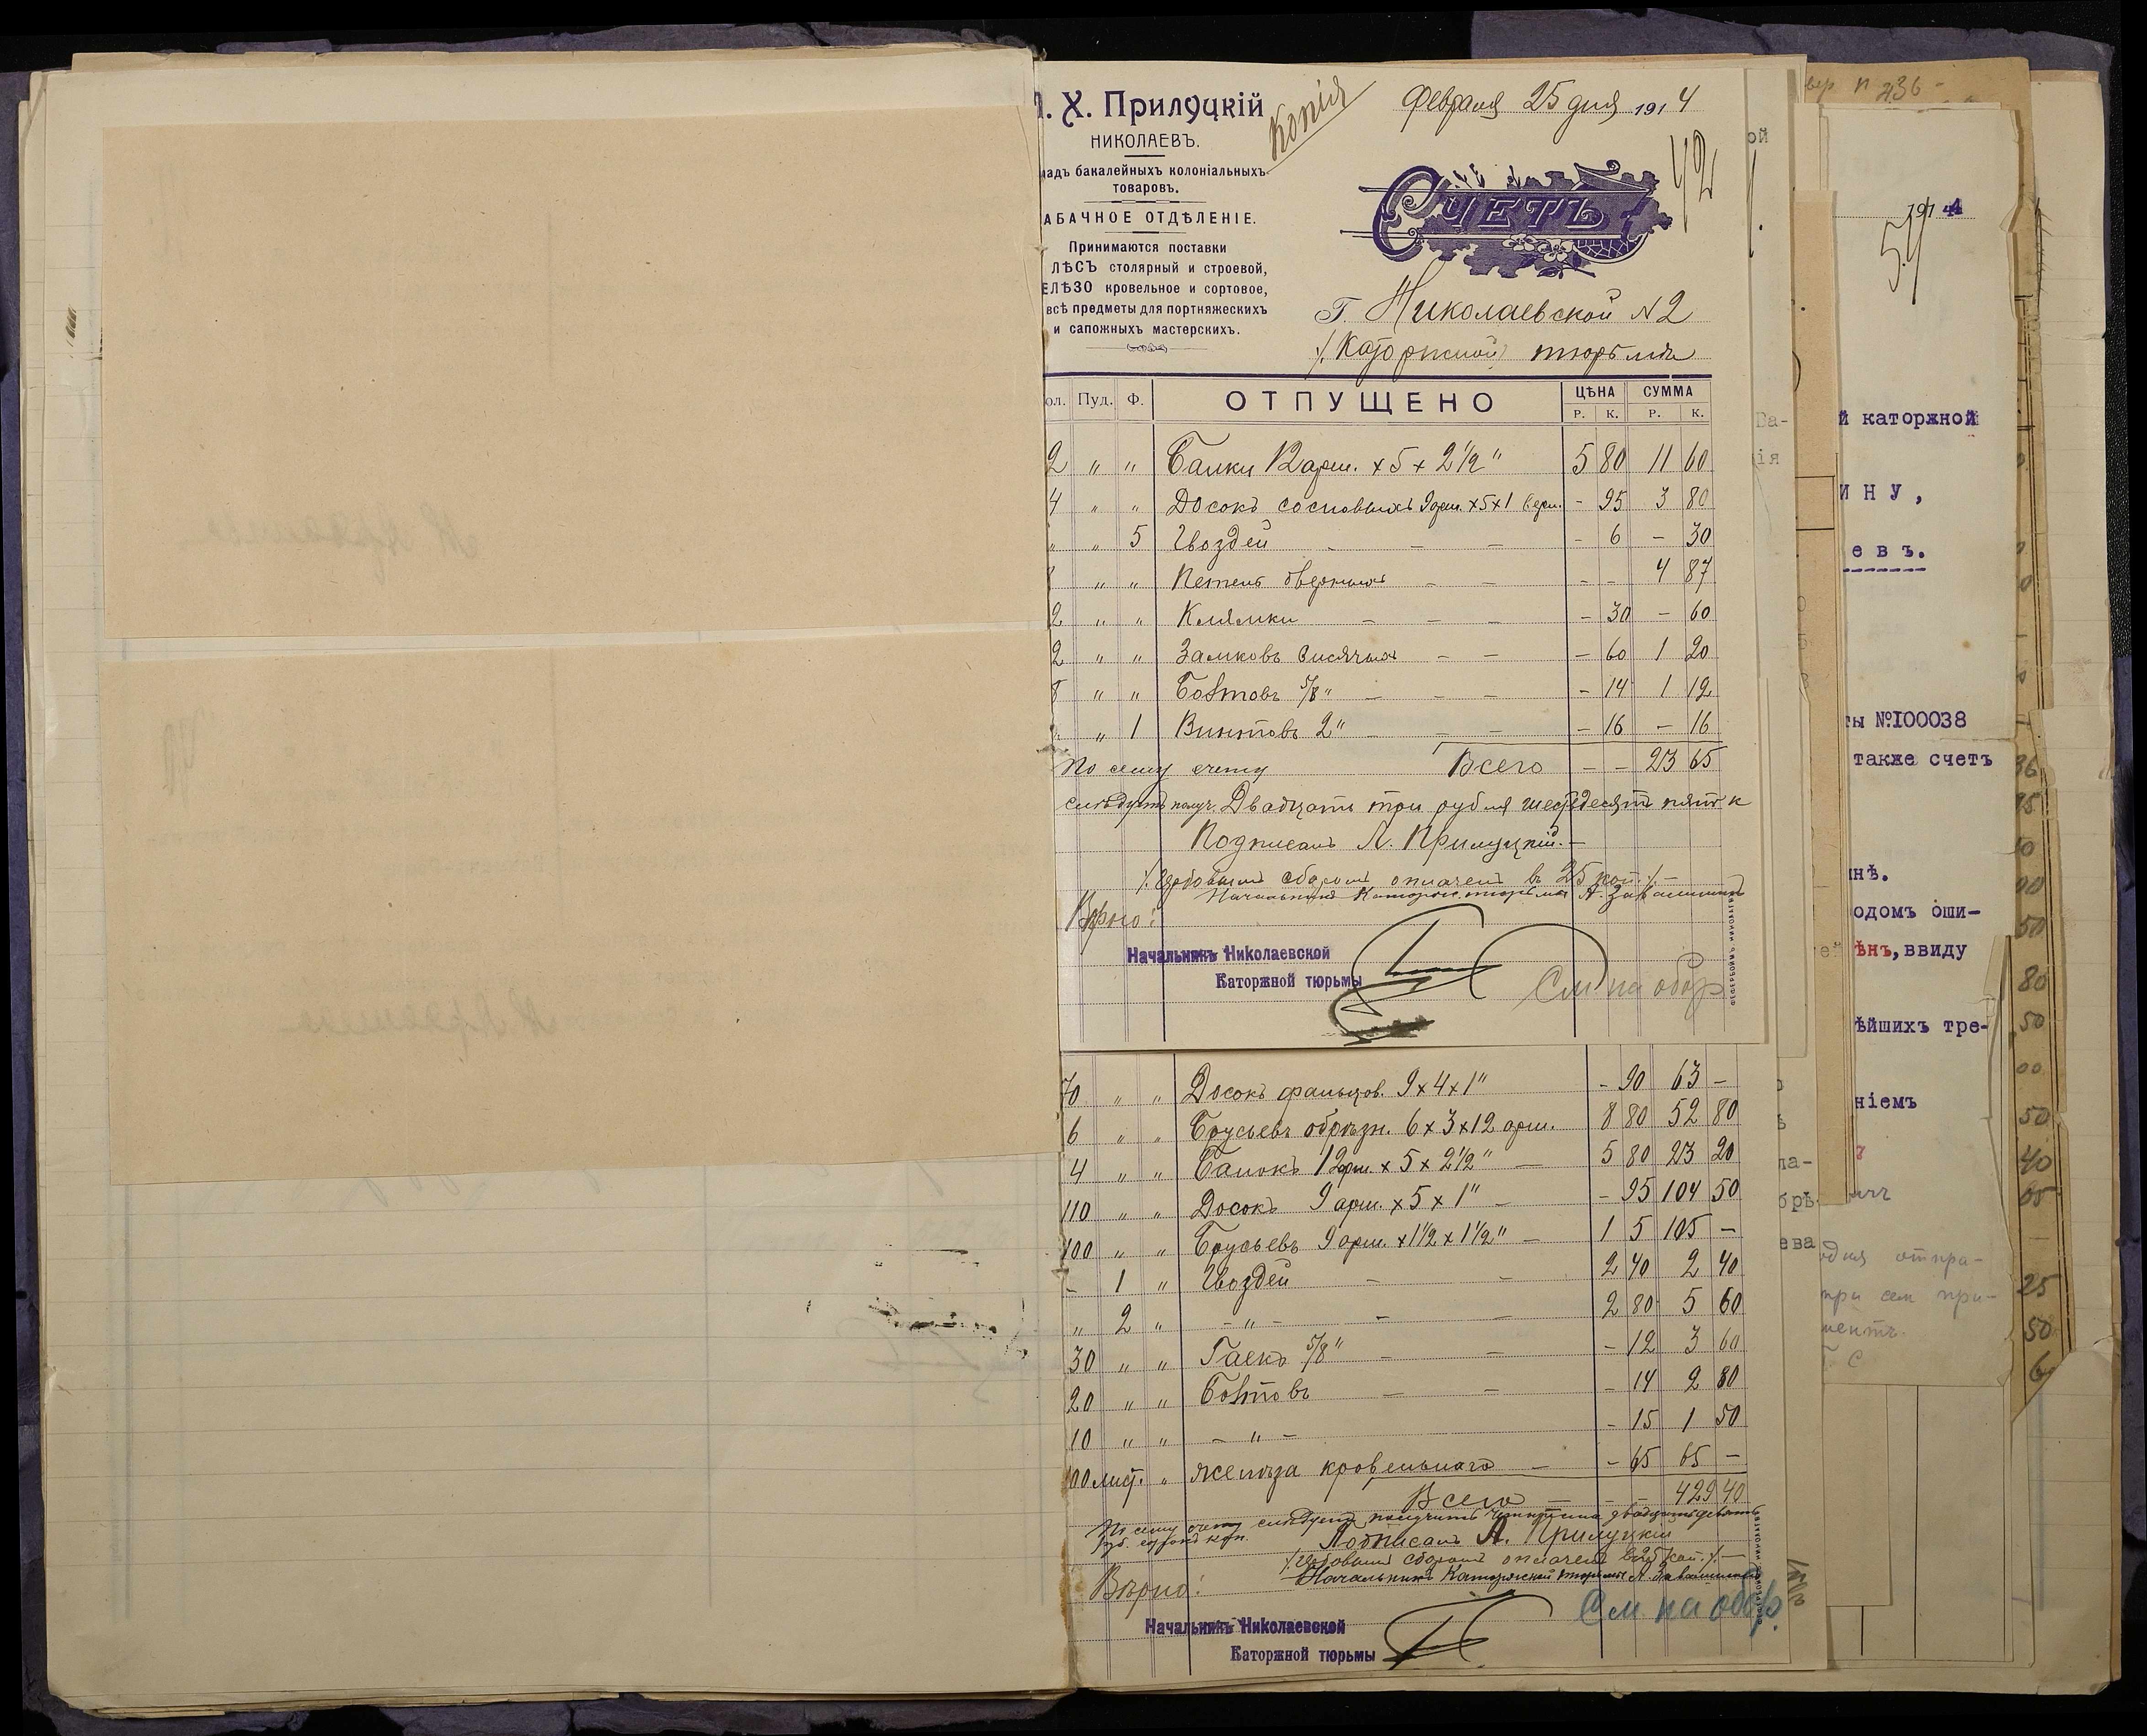 Х. Прилуцкій
НИКОЛАЕВЪ.
бакалейныхъ колоніальныхъ
товаровъ.
АБАЧНОЕ ОТДѢЛЕНІЕ.
Принимаются поставки
ЛѢСЪ столярный и строевой,
ЕЛѢЗО кровельное и сортовое,
всѣ предметы для портняжескихъ
и сапожныхъ мастерскихъ.
Копія
Февраля 25 дня 1914
42
Счетъ
Г. Николаевской №2
Каторжной тюрьмы
ол. Пуд. Ф. ОТПУЩЕНО ЦѢНА СУММА
Р. К. Р. К.
2 " " Балки 12 арш. x 5 x 2 1/2" 5 80 11 60
4 " " Досокъ сосновыхъ 9 арш. x5x1 верш. - 95 3 80
" " 5 Гвоздей - - - - 6 - 30
" " Петель дверныхъ - - - - 4 87
2 " " Клямки - - - - 30 - 60
2 " " Замковъ висячихъ - - - 60 1 20
8 " " Болтовъ 5/8" - - - - 14 1 12
" " 1 Винтовъ 2" - - - - 16 - 16
По сему счету Всего - - 23 65
слѣдуетъ получ. Двадцать три рубля шестьдесятъ пять к
Подписалъ Л. Прилуцкій.-
Гербовымъ сборомъ оплаченъ въ 25 коп.
Начальникъ Каторжн. тюрьмы А. Завалишинъ
Вѣрно:
Начальникъ Николаевской
Каторжной тюрьмы
См. на обор
70 " " Досокъ фальцов. 9 x 4 x 1" - 90 63 -
6 " " Брусьевъ обрѣзн. 6 x 3 x 12 арш. 8 80 52 80
4 " " Балокъ 12 арш. x 5 x 2 1/2" - 5 80 23 20
110 " " Досокъ 9 арш. x 5 x 1" - - 95 104 50
100 " " Брусьевъ 9 арш. x 1 1/2 x 1 1/2" - 1 5 105 -
- 1 " Гвоздей - - 2 40 2 40
" 2 " - " - - - 2 80 5 60
30 " " Гаекъ 5/8" - - - 12 3 60
20 " " Болтовъ - - - 14 2 80
10 " " - " - - 15 1 50
100 лист. " желѣза кровельнаго - - 65 65 -
Всего - - - 429 40
По сему счету слѣдуетъ получить четыреста двадцать девять
руб. сорокъ коп.
Подписалъ Л. Прилуцкій
Гербовымъ сборомъ оплаченъ въ 25 коп.
Начальникъ Каторжной тюрьмы А. Завалишинъ
Вѣрно:
См. на обор.
Начальникъ Николаевской
Каторжной тюрьмы
ой
Ва-
ія
ла-
брѣ
ева
236 -
1914
54
й каторжной
ИНУ,
евъ.
ты №100038
также счетъ
нѣ.
одомъ оши-
ѣнъ, ввиду
ѣйшихъ тре-
ніемъ
отпра-
при сем при-
36
95
50
90
50
80
50
00
50
40
05
25
50